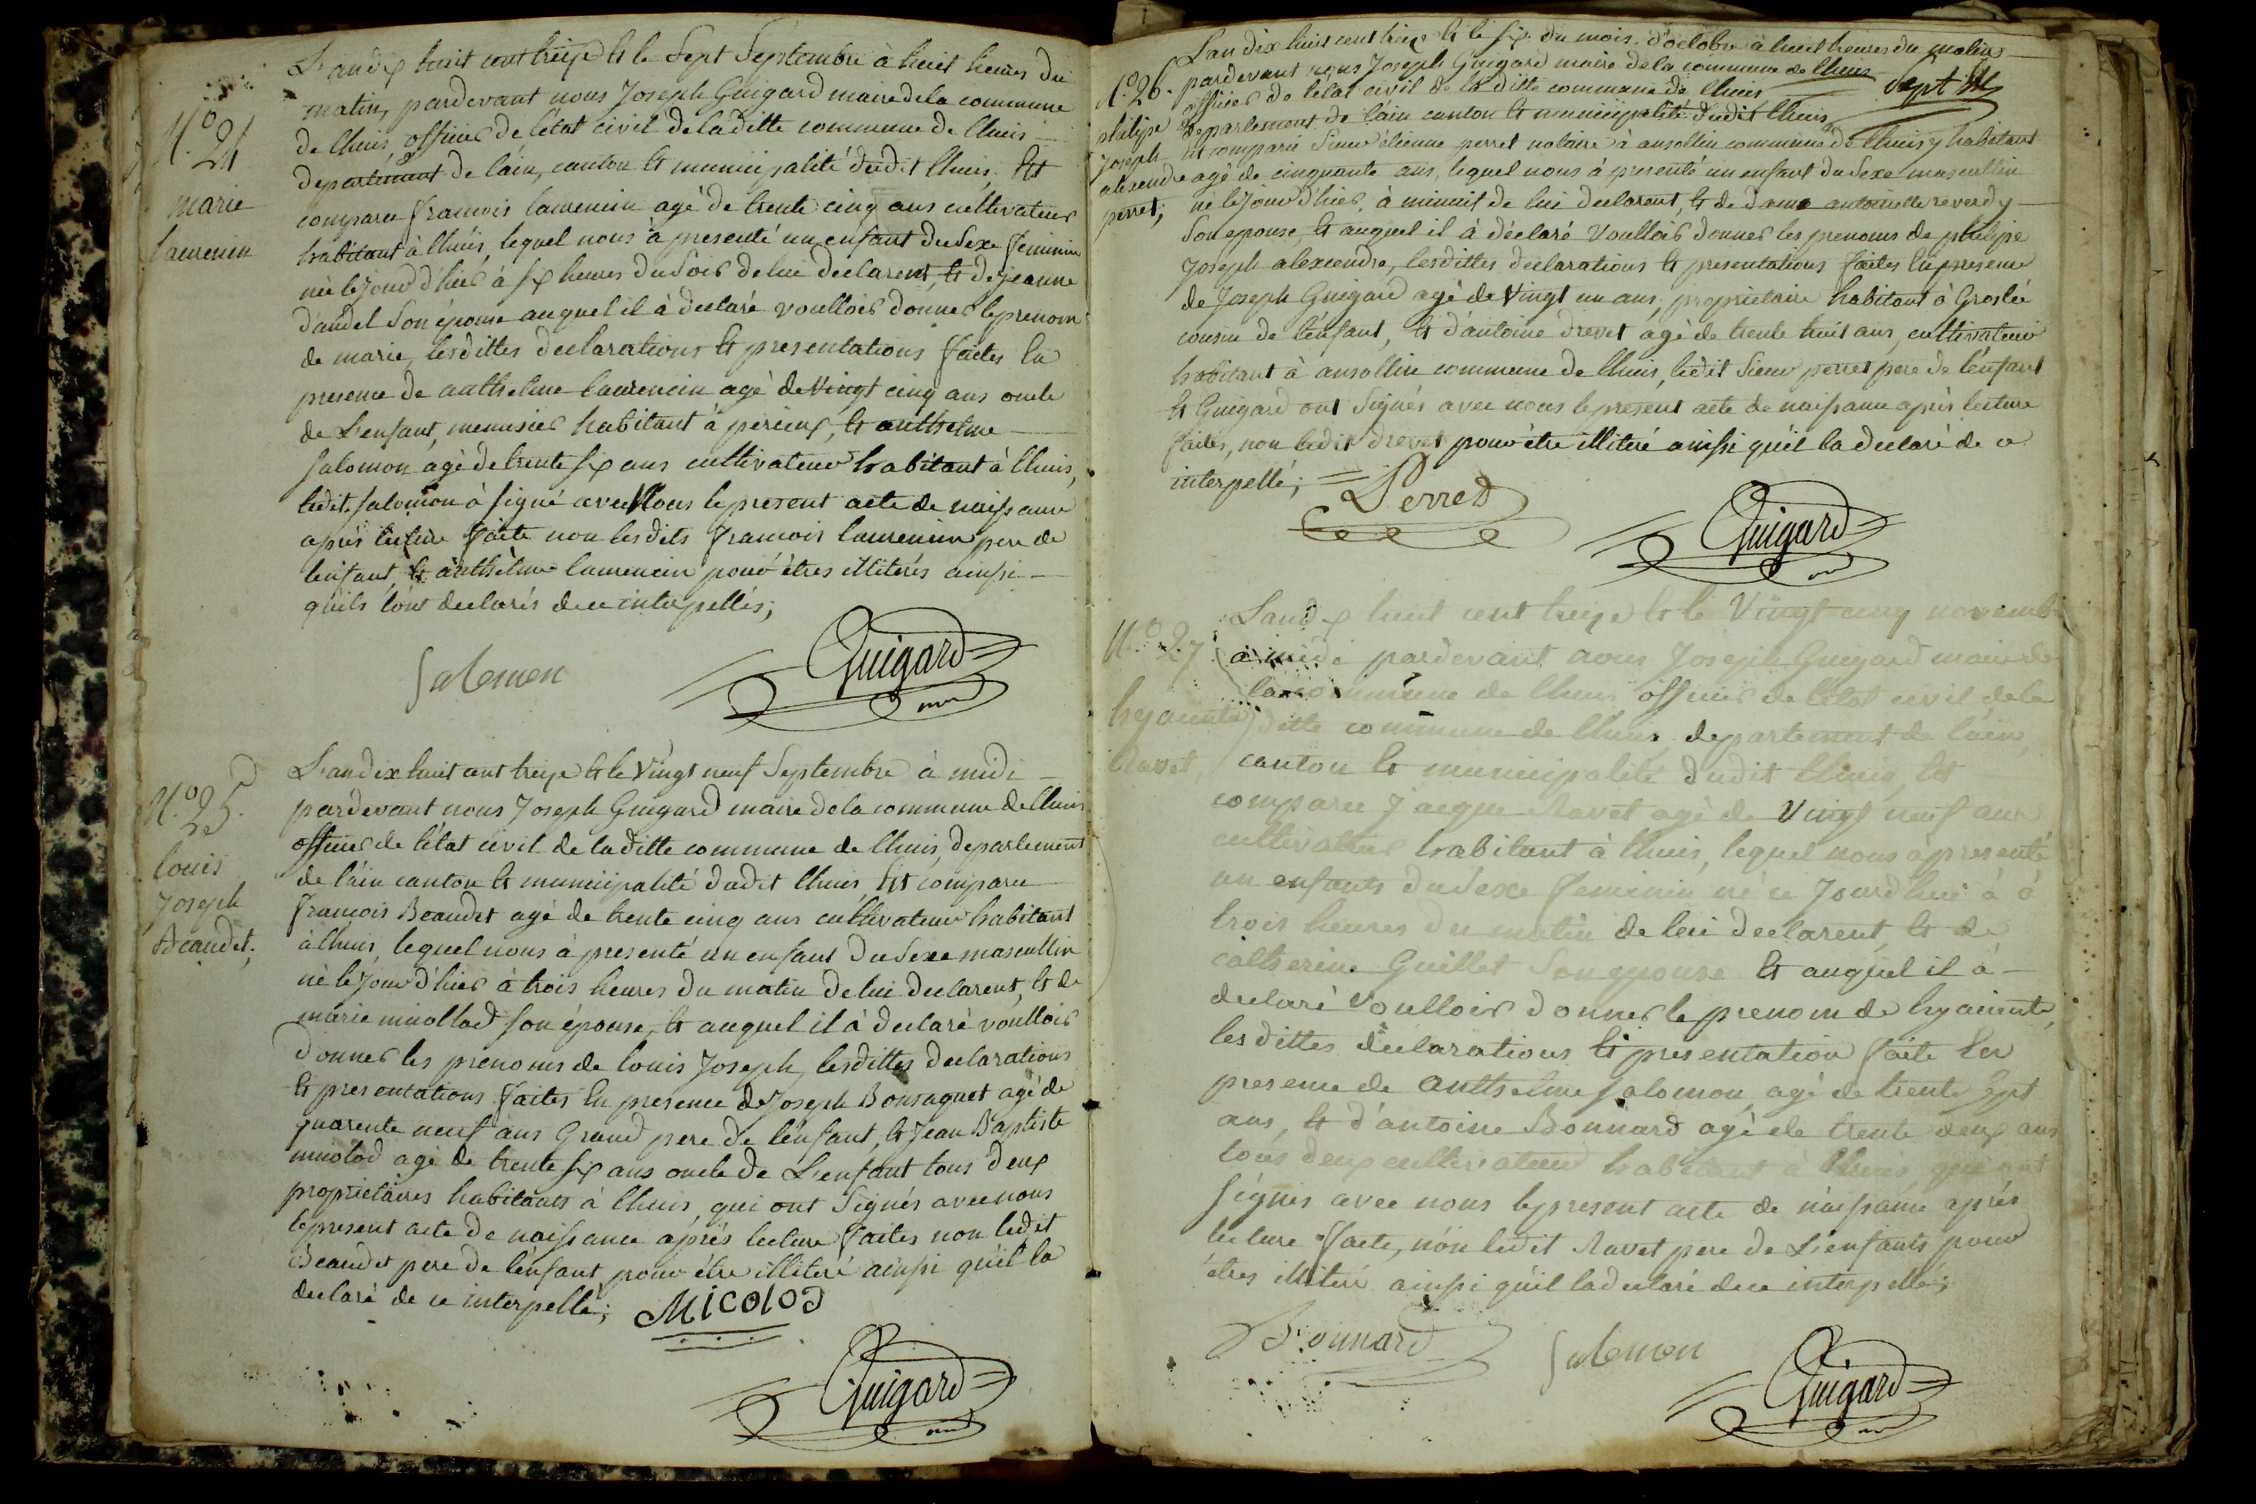 L'an dix huit cent treize et le Sept Septembre à huit heures du
matin, pardevant nous Joseph Guigard maire de la commune
N.o 24
de lhuis, officier de l'état civil de laditte commune de lhuis
département de l'ain, canton et municipalité dudit lhuis, Est
marie
comparu francois laurencin agé de trente cinq ans cultivateur
laurencin
habitant à lhuis, lequel nous à presenté un enfant du Sexe feminin
née le Jour d'hier à six heures du Soir de lui declarent, et de Jeanne
daudel Son épouse auquel il à declaré voulloir donner le prenom
de marie, lesdittes declarations et presentations faites En
presence de anthelme laurencin agé de Vingt cinq ans oncle
de L'enfant, menusier habitant à , et anthelme
salomon agé de trente six ans cultivateur habitant à lhuis,
ledit salomon à signé avec Nous le present acte de naissance
après lecture faite non lesdits francois laurencin pere de
lenfant, et anthelme laurencin pour êtres illiterés ainssi
quils lont declarés de ce interpellés;
Salomon
Guigard
N.o 25.
L'an dix huit cent treize et le Vingt neuf Septembre à midi
pardevant nous Joseph Guigard maire de la commune de lhuis
officier de l'état civil de laditte commune de lhuis, departement
louis
de l'ain canton et municipalité dudit lhuis, Est comparu
Joseph
francois Beaudet agé de trente cinq ans cultivateur habitant
Beaudet;
à lhuis, lequel nous à presenté un enfant du Sexe mascullin
né le Jour d'hier à trois heures du matin de lui declarent, et de
marie micollod son épouse, et auquel il à declaré voulloir
donner les prenoms de louis Joseph, lesdittes declarations
et presentations faites En presence de Joseph Bonsaquet agé de
quarente neuf ans Grand pere de l'enfant, et Jean Baptiste
micolod agé de trente six ans oncle de L'enfant tous deux
proprietaires habitants à lhuis, qui ont Signés avec nous
le present acte de naissance après lecture faites non ledit
Beaudet pere de l'enfant pour être illiteré ainssi qu'il la
declaré de ce interpellé; MICOLOD
Guigard
L'an dix huit cent treize et le six du mois d'octobre à huit heures du matin
N.o 26. pardevant nous Joseph Guigard maire de la commune de lhuis
officier de l'état civil de la ditte commune de lhuis
philipe departement de l'ain canton et municipalité dudit lhuis
Joseph Est comparu Sieur etienne perret notaire à ansollin commune de lhuis y habitant
alexendre agé de cinquante ans, lequel nous à presenté un enfant du Sexe mascullin
perret; né le Jour d'hier, à minuit de lui declarent, et de dame antoinette reverdy
Son epouse, et auquel il à déclaré Voulloir donner les prenoms de philipe
Joseph alexendre, lesdittes declarations et presentations faites En presence
de Joseph Guigard agé de Vingt un ans, proprietaire habitant à Groslée
cousin de l'enfant, et d'antoine drevet agé de trente huit ans, cultivateur
habitant à ansollin commune de lhuis, ledit Sieur perret pere de l'enfant
et Guigard ont Signés avec nous le present acte de naissance après lecture
faites, non ledit drevet pour être illiteré ainssi qu'il la declaré de ce
interpellé;
Perret
Guigard
L'an dix huit cent treize et le Vingt cinq novembre
N.o 27. à midi pardevant nous Joseph Guigard maire de
la commune de lhuis officier de l'état civil de la
hyacinte ditte commune de lhuis, departement de l'ain
Ravet, canton et municipalité dudit lhuis, Est
comparu Jacque Ravet agé de Vingt neuf ans
cultivateur habitant à lhuis, lequel nous à presenté
un enfants du Sexe feminin né ce Jourd'hui à
trois heures du matin de lui declarent, et de
catherine Guillet Son epouse et auquel il à
declaré Voulloir donner le prenom de hyacinte,
lesdittes déclarations et presentation faite En
presence de anthelme salomon agé de trente Sept
ans, et d'antoine Bonnard agé de trente deux ans
tous deux cultivateurs habitant à lhuis, qui ont
signés avec nous le present acte de naissance après
lecture faite, non ledit Ravet pere de L'enfants pour
êtres illiteré ainssi qu'il la declaré de ce interpellé;
Bonnard
Salomon
Guigard